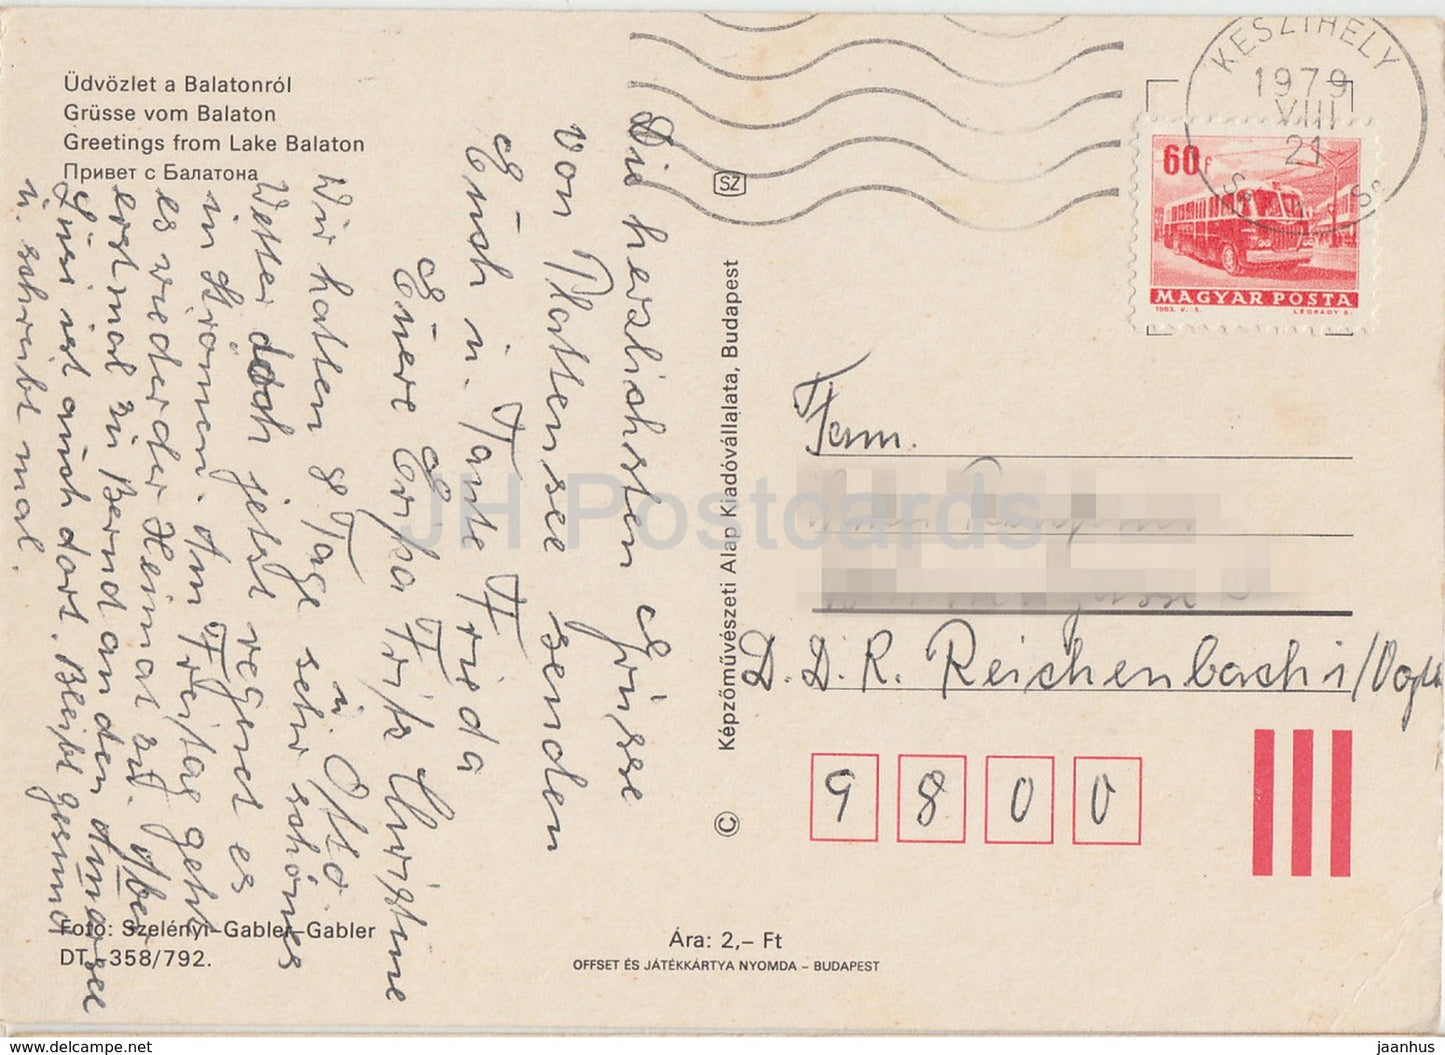 Üdvözlet a Balatonról
Grüsse vom Balaton
Greetings from Lake Balaton
Привет с Балатона
Die herzlichsten Grüsse
von Plattensee senden
Euch u. Tante Frieda
u. Otto
Euere Erika Frita Christine
Wir hatten 8 Tage sehr schönes
Wetter doch jetzt regnet es
in Strömen. Am Freitag geht
es wieder der Heimat zu. Aber
erst mal zu Bernd an den Ammersee
Susi ist auch dort. Bleibt gesund
u. schreibt mal.
Foto: Szelényi–Gabler–Gabler
DT –358/792.
SZ
© Képzőművészeti Alap Kiadóvállalata, Budapest
Ára: 2,– Ft
OFFSET ÉS JÁTÉKKÁRTYA NYOMDA – BUDAPEST
KESZTHELY
1979
VIII
21
60f
MAGYAR POSTA
1963. V. S.
LÉGRÁDY S.
Fam.
D. D. R. Reichenbach i/Vogtl
9 8 0 0
JH Postcards
www.delcampe.net
jaanhus